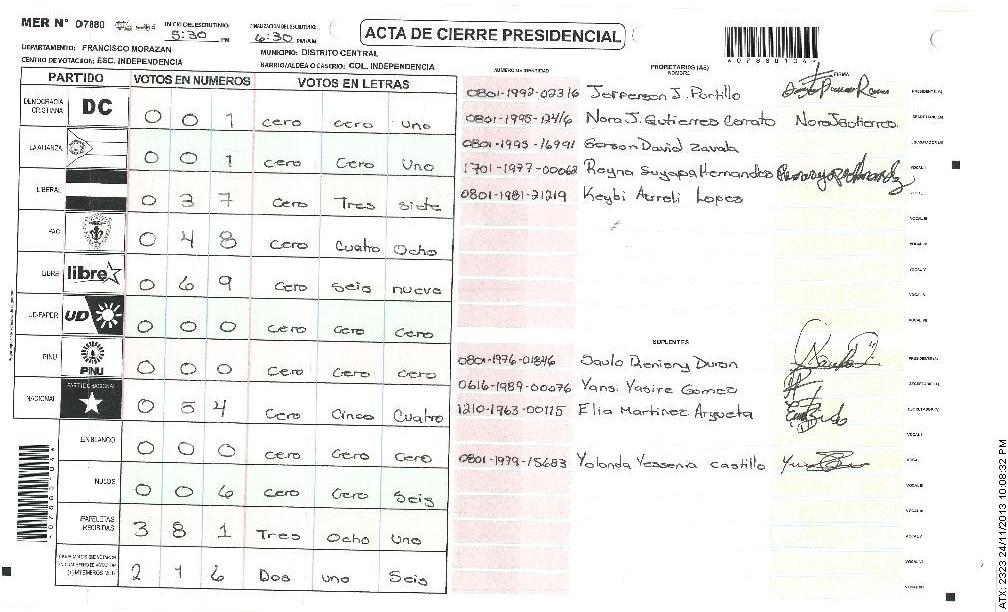 MER Nº 07880 INICIO DEL ESCRUTINIO: 5:30 PM FINALIZACION DEL ESCRUTINIO: 6:30 PM/AM
ACTA DE CIERRE PRESIDENCIAL
DEPARTAMENTO: FRANCISCO MORAZAN MUNICIPIO: DISTRITO CENTRAL
CENTRO DE VOTACION: ESC. INDEPENDENCIA BARRIO/ALDEA O CASERIO: COL. INDEPENDENCIA
PARTIDO VOTOS EN NUMEROS VOTOS EN LETRAS
DEMOCRACIA CRISTIANA DC 0 0 1 cero cero uno
LA ALIANZA 0 0 1 cero Cero Uno
LIBERAL 0 3 7 cero Tres siete
PAC 0 4 8 cero Cuatro Ocho
LIBRE libre 0 6 9 Cero Seis nueve
UD-FAPER UD 0 0 0 Cero Cero Cero
PINU PINU 0 0 0 Cero Cero Cero
NACIONAL PARTIDO NACIONAL 0 5 4 Cero Cinco Cuatro
EN BLANCO 0 0 0 Cero Cero Cero
NULOS 0 0 6 Cero Cero Seis
PAPELETAS RECIBIDAS 3 8 1 Tres Ocho Uno
2 1 6 Dos uno Seis
NUMERO DE IDENTIDAD PROPIETARIOS (AS) NOMBRE FIRMA
0801-1992-02316 Jefferson J. Portillo PRESIDENTE(A)
0801-1995-12416 Nora J. Gutierres Corrato Nora J Gutierres SECRETARIO(A)
0801-1995-16991 Gerson David Zavala ESCRUTADOR(A)
1701-1977-00062 Reyna Suyapa Hernandes VOCAL I
0801-1981-21219 Keybi Aureli Lopez
VOCAL III
VOCAL IV
VOCAL V
VOCAL VI
VOCAL VII
SUPLENTES
0801-1976-01846 Saulo Renieny Duron PRESIDENTE(A)
0616-1989-00076 Yans. Yasire Gomez SECRETARIO(A)
1210-1963-00115 Elia Martinez Argueta ESCRUTADOR(A)
VOCAL I
0801-1979-15683 Yolanda Yessenia Castillo VOCAL
VOCAL III
VOCAL V
VOCAL VI
VOCAL VII
ATX: 2323 24/11/2013 10:08:32 PM